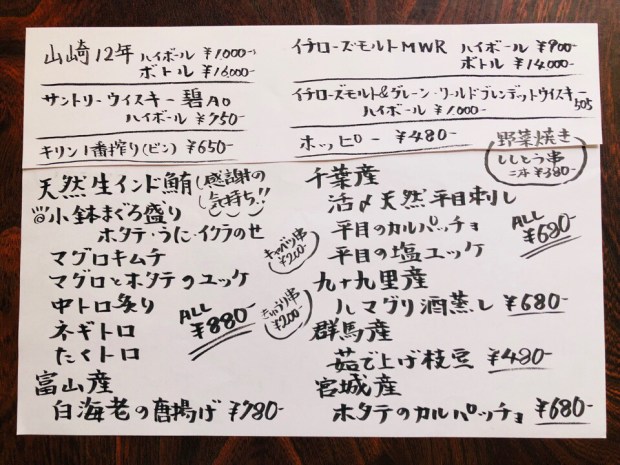 山崎12年 ハイボール ¥1.000-
ボトル ¥16.000-
サントリーウイスキー 碧Ao
ハイボール ¥750-
キリン1番搾り(ビン) ¥650-
イチローズモルトMWR ハイボール ¥900-
ボトル ¥14.000-
イチローズモルト&グレーン・ワールドブレンデットウイスキー
505
ハイボール ¥1.000-
ホッピー ¥480-
野菜焼き
ししとう串
二本 ¥380-
天然生インド鮪
感謝の
気持ち!!
小鉢まぐろ盛り
ホタテ・うに・イクラのせ
マグロキムチ
マグロとホタテのユッケ
中トロ炙り
ネギトロ
たくトロ
ALL
¥880-
キャベツ串
¥200-
きゅうり串
¥200-
富山産
白海老の唐揚げ ¥780-
千葉産
活〆天然平目刺し
平目のカルパッチョ
平目の塩ユッケ
ALL
¥680-
九十九里産
ハマグリ酒蒸し ¥680-
群馬産
茹で上げ枝豆 ¥480-
宮城産
ホタテのカルパッチョ ¥680-